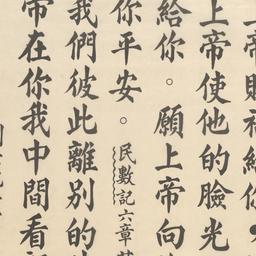 帝賜福給你，
上帝使他的臉光
給你。願上帝向
你平安。民數記六章
我們彼此離別的
帝在你我中間看